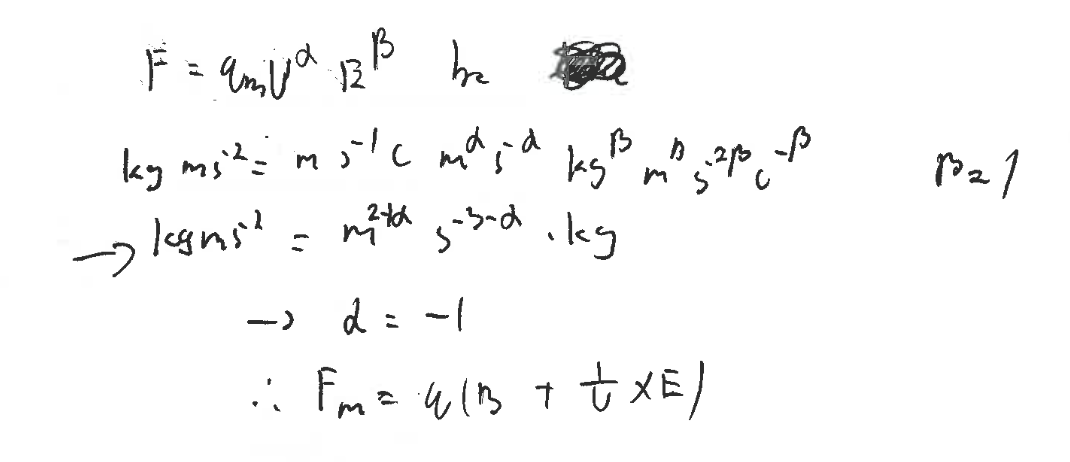 F = qₘ v^α B^β
kg ms⁻² = m s⁻¹ C m^α s^-α kg^β m^β s^-2β C^-β β = 1
→ kg ms⁻² = m^2+α s^-3-α · kg
→ α = -1
∴ Fₘ = q(B + 1/v × E)